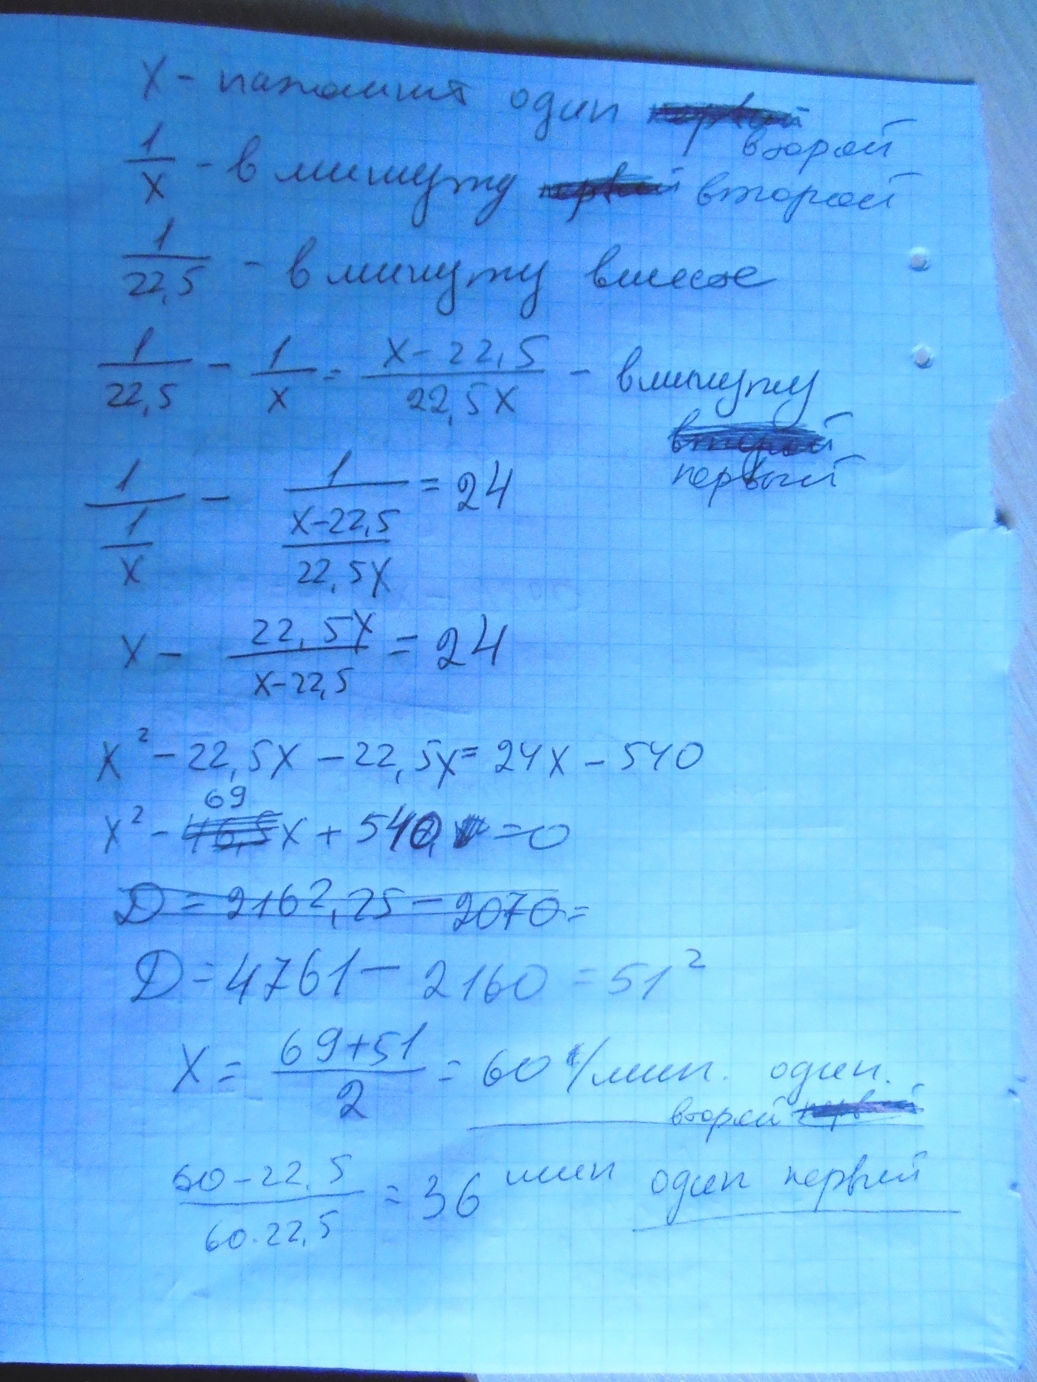 x - наполнит один первый второй
1/x - в минуту первый второй
1/22,5 - в минуту вместе
1/22,5 - 1/x = x-22,5/22,5x - в минуту
второй
первый
1/(1/x) - 1/(x-22,5/22,5x) = 24
x - 22,5x/x-22,5 = 24
x² - 22,5x - 22,5x = 24x - 540
69
x² - 46,5x + 540 = 0
D = 2162,25 - 2070 =
D = 4761 - 2160 = 51²
x = 69+51/2 = 60 /мин. один.
второй первый
60-22,5/60·22,5 = 36 мин один первый